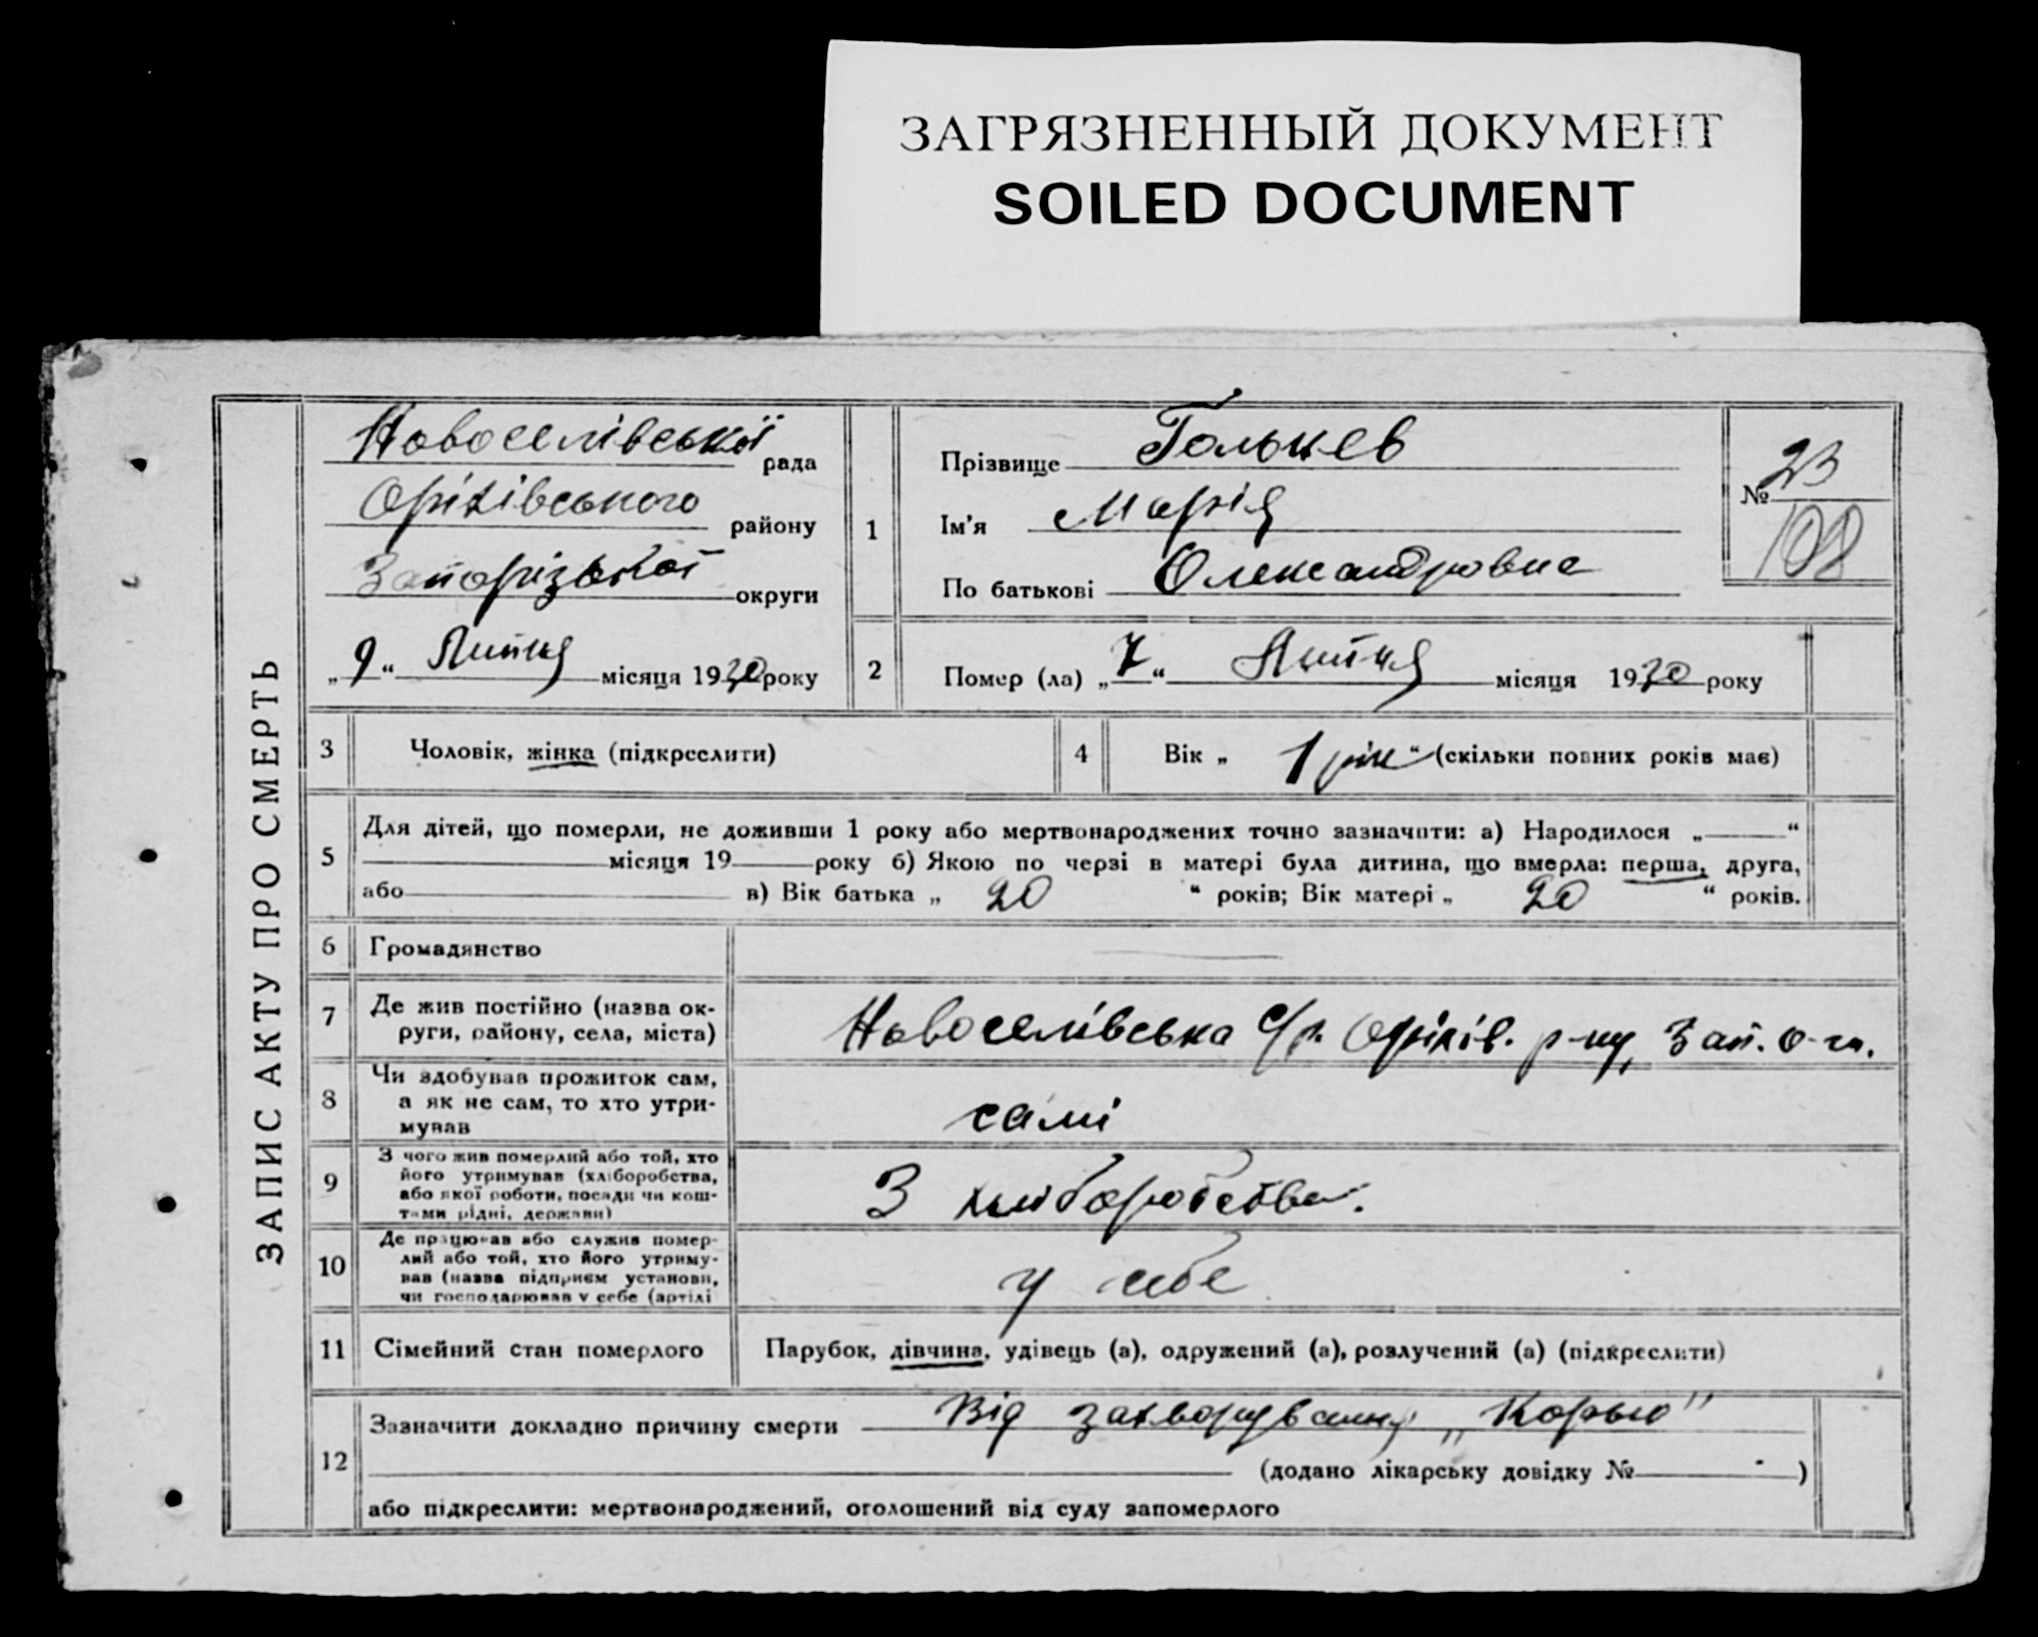 ЗАГРЯЗНЕННЫЙ ДОКУМЕНТ
SOILED DOCUMENT
ЗАПИС АКТУ ПРО СМЕРТЬ
Новоселівської рада
Оріхівського району
Запорізької округи
„9“ Липня місяця 1930 року
1
Прізвище Гольцев
Ім'я Марія
По батькові Олександровна
№ 23
108
2
Помер (ла) „7“ Липня місяця 1930 року
3 Чоловік, жінка (підкреслити)
4 Вік „1 рік“ (скільки повних років має)
5
Для дітей, що померли, не доживши 1 року або мертвонароджених точно зазначити: а) Народилося „ “
місяця 19 року б) Якою по черзі в матері була дитина, що вмерла: перша, друга,
або в) Вік батька „ 20 “ років; Вік матері „ 20 “ років.
6 Громадянство
7 Де жив постійно (назва ок-
руги, району, села, міста)
Новоселівська с/р. Оріхів. р-ну, Зап. о-ги.
8 Чи здобував прожиток сам,
а як не сам, то хто утри-
мував
самі
9 З чого жив померлий або той, хто
його утримував (хліборобства,
або якої роботи, посади чи кош-
тами рідні, держави)
З хліборобства.
10 Де працював або служив помер-
лий або той, хто його утриму-
вав (назва підприєм установи,
чи господарював у себе (артілі
у себе
11 Сімейний стан померлого
Парубок, дівчина, удівець (а), одружений (а), розлучений (а) (підкреслити)
12
Зазначити докладно причину смерти Від захворування „Корью"
(додано лікарську довідку № )
або підкреслити: мертвонароджений, оголошений від суду запомерлого